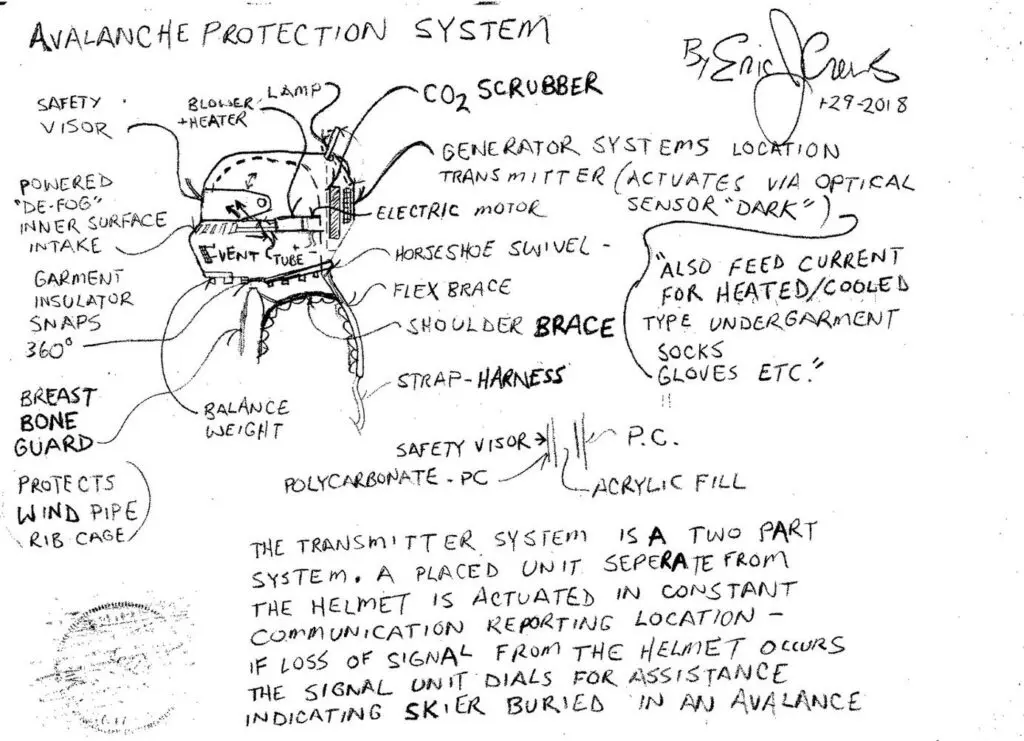 AVALANCHE PROTECTION SYSTEM
By Eric J Crews
1-29-2018
SAFETY
VISOR
BLOWER
+HEATER
LAMP
CO2 SCRUBBER
GENERATOR SYSTEMS LOCATION
TRANSMITTER (ACTUATES VIA OPTICAL
SENSOR "DARK")
POWERED
"DE-FOG"
INNER SURFACE
INTAKE
ELECTRIC MOTOR
VENT
TUBE
HORSESHOE SWIVEL -
"ALSO FEED CURRENT
FOR HEATED/COOLED
TYPE UNDERGARMENT
SOCKS
GLOVES ETC."
!!
GARMENT
INSULATOR
SNAPS
360°
FLEX BRACE
SHOULDER BRACE
STRAP-HARNESS
BREAST
BONE
GUARD
BALANCE
WEIGHT
PROTECTS
WIND PIPE
RIB CAGE
SAFETY VISOR
P.C.
POLYCARBONATE - PC
ACRYLIC FILL
THE TRANSMITTER SYSTEM IS A TWO PART
SYSTEM. A PLACED UNIT SEPERATE FROM
THE HELMET IS ACTUATED IN CONSTANT
COMMUNICATION REPORTING LOCATION -
IF LOSS OF SIGNAL FROM THE HELMET OCCURS
THE SIGNAL UNIT DIALS FOR ASSISTANCE
INDICATING SKIER BURIED IN AN AVALANCE